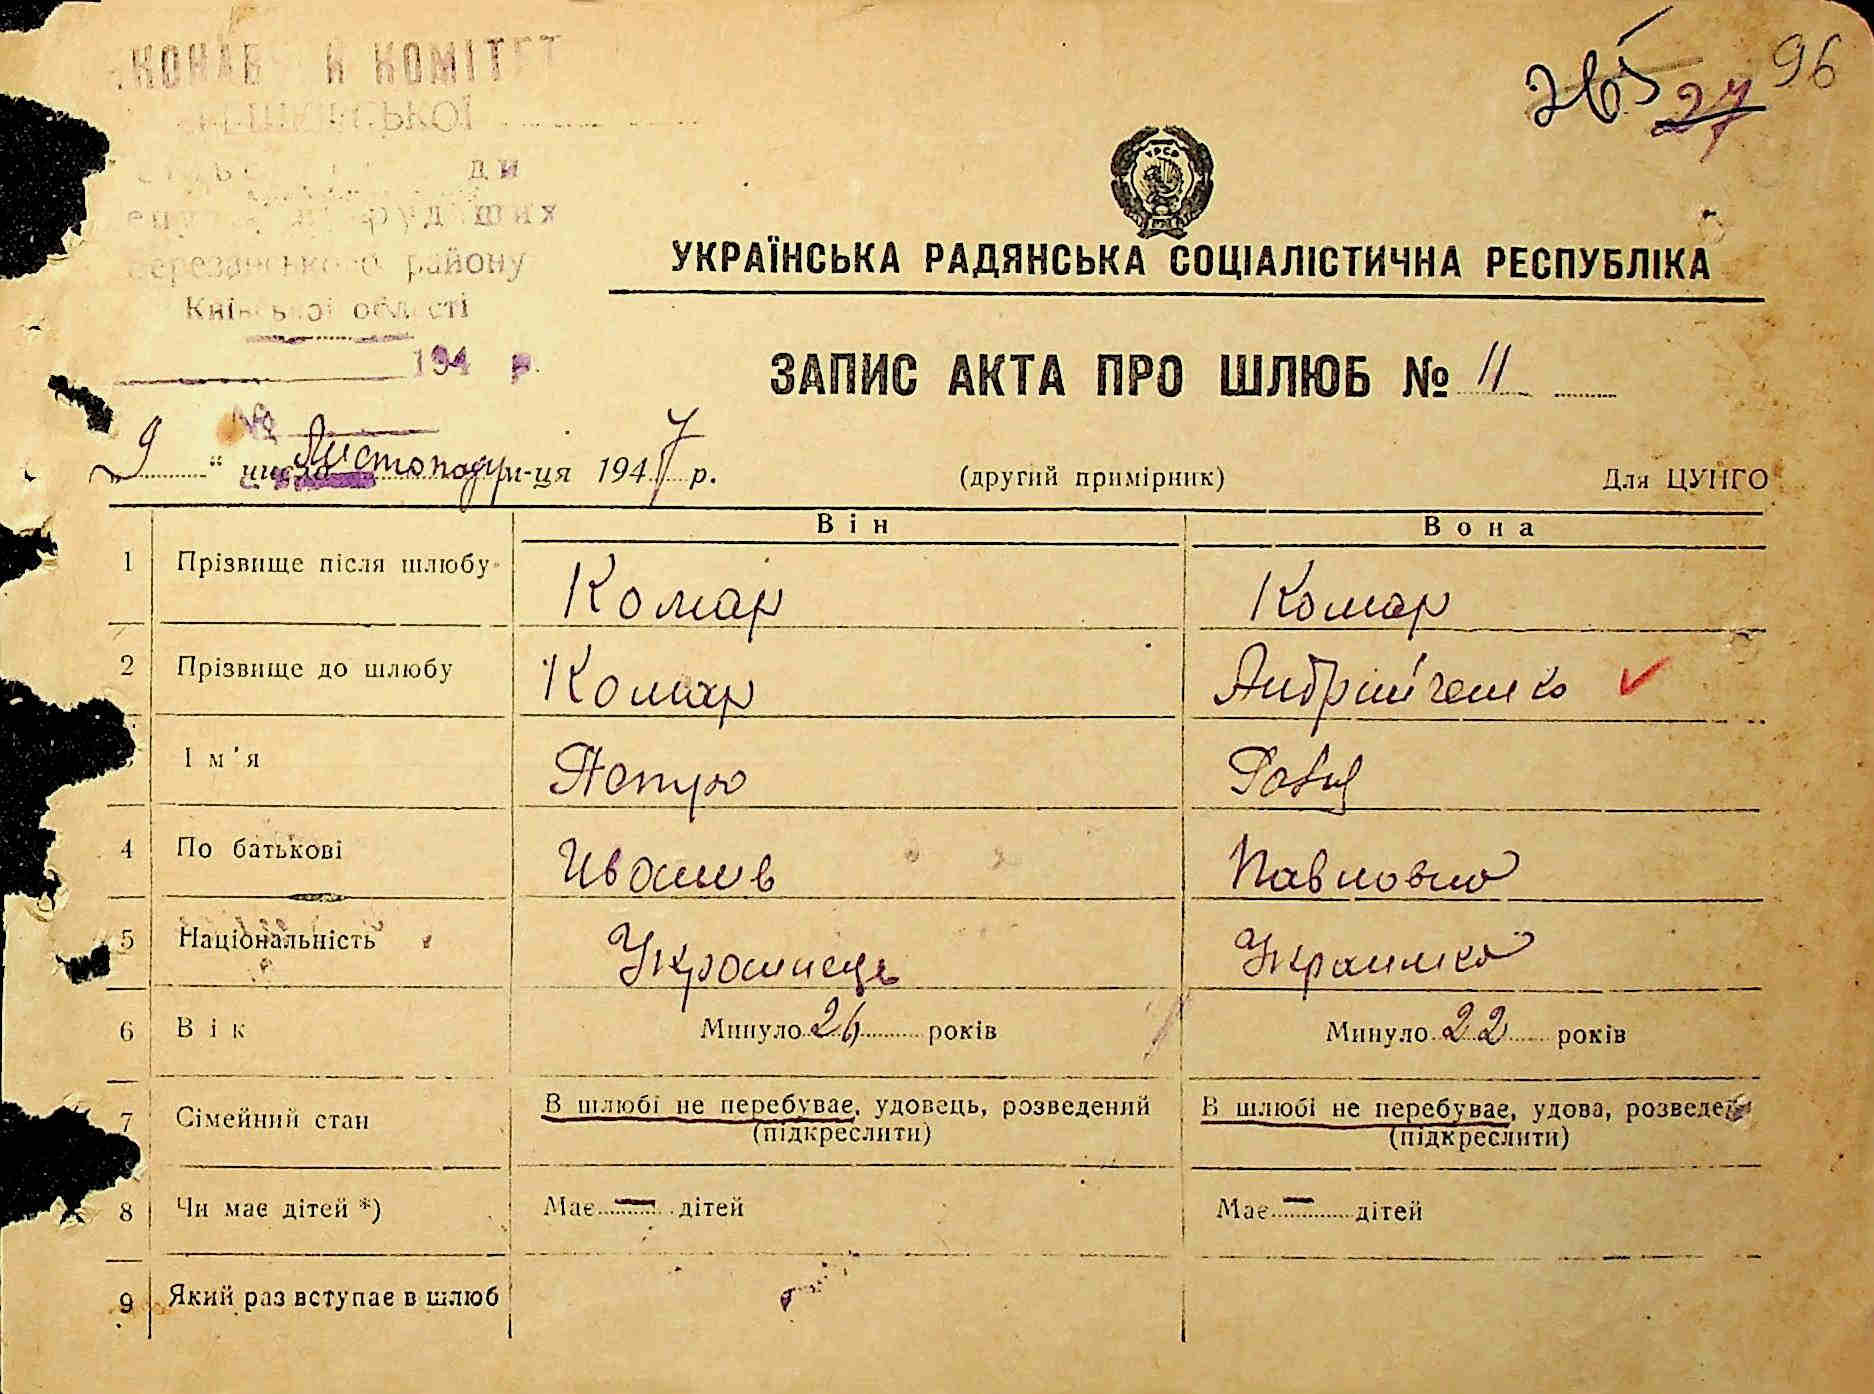 КОНАВ Й КОМІТЕТ
96
265 27
ди
району
Київської області
194 р.
№
УКРАЇНСЬКА РАДЯНСЬКА СОЦІАЛІСТИЧНА РЕСПУБЛІКА
ЗАПИС АКТА ПРО ШЛЮБ № 11
9 " числа Листопад м-ця 1947 р. (другий примірник) Для ЦУНГО
Він Вона
1 Прізвище після шлюбу Комар Комар
2 Прізвище до шлюбу Комар Андрійченко
Ім'я Петро
4 По батькові Иванив Павловна
5 Національність Украинець Украинка
6 Вік Минуло 26 років Минуло 22 років
7 Сімейний стан В шлюбі не перебуває, удовець, розведений В шлюбі не перебуває, удова, розведе
(підкреслити) (підкреслити)
8 Чи має дітей *) Має — дітей Має — дітей
9 Який раз вступає в шлюб